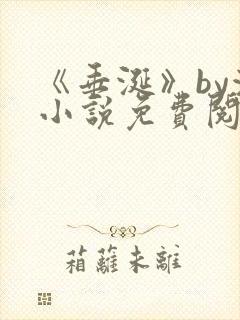 《垂涎》by
小說免費閱
箱蘿未離